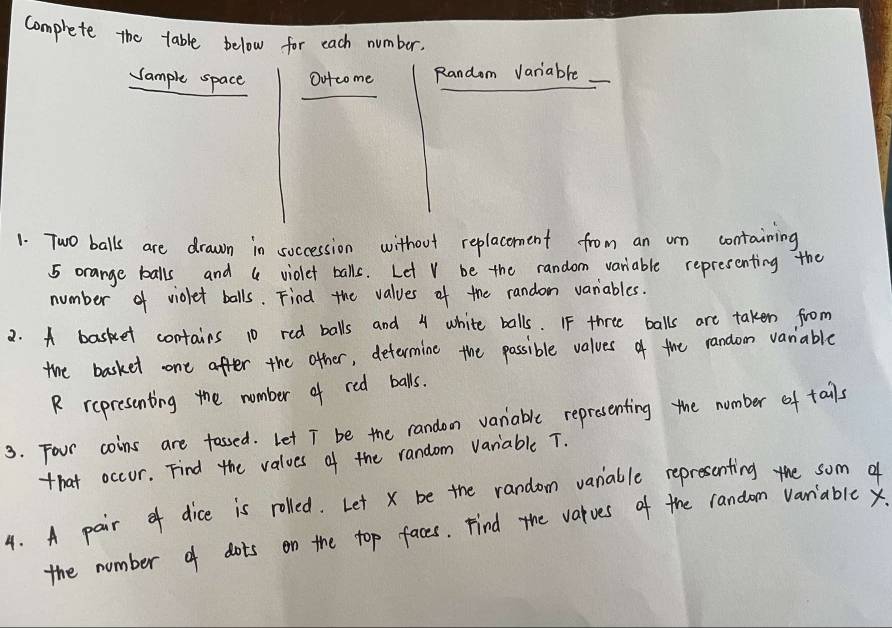 Complete the table below for each number.
Sample space Outcome Random Variable __
1. Two balls are drawn in succession without replacement from an urn containing
5 orange balls and 6 violet balls. Let V be the random variable representing the
number of violet balls. Find the values of the random variables.
2. A basket contains 10 red balls and 4 white balls. If three balls are taken from
the basket one after the other, determine the possible values of the random variable
R representing the number of red balls.
3. Four coins are tossed. Let T be the random variable representing the number of tails
that occur. Find the values of the random variable T.
4. A pair of dice is rolled. Let X be the random variable representing the sum of
the number of dots on the top faces. Find the values of the random variable X.